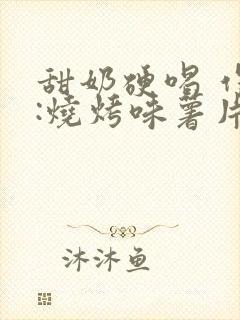 甜奶硬唱
:燒烤味薯片
沐沐鱼